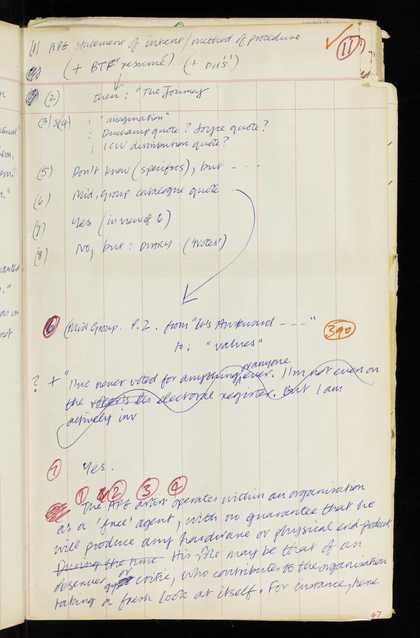 (1) APG statement of intent/method of procedure
(+ BTF resumé) (+ D115')
11
(2) then: "The Journey
(3) & (4) : "imagination"
: Duchamp quote? Joyce quote?
: ICW distribution quote?
(5) Don't know (specifics), but - - -
(6) Mid. Group catalogue quote
(7) Yes (in view of 6)
(8) No, but: (Notes')
6 (Mid Group. P.2. from "Awkward - - - "
to: "values"
390
? + "I've never voted for anything, ever. I'm not even on
anyone
the electoral register. But I am
actively inv
7 Yes.
1 2 3 4
The APG artist operates within an organisation
as a 'free' agent, with no guarantee that he
will produce any hardware or physical end-product
During the time His rôle may be that of an
observer, or critic, who contributes to the organisation
taking a fresh look at itself. For instance, here
47